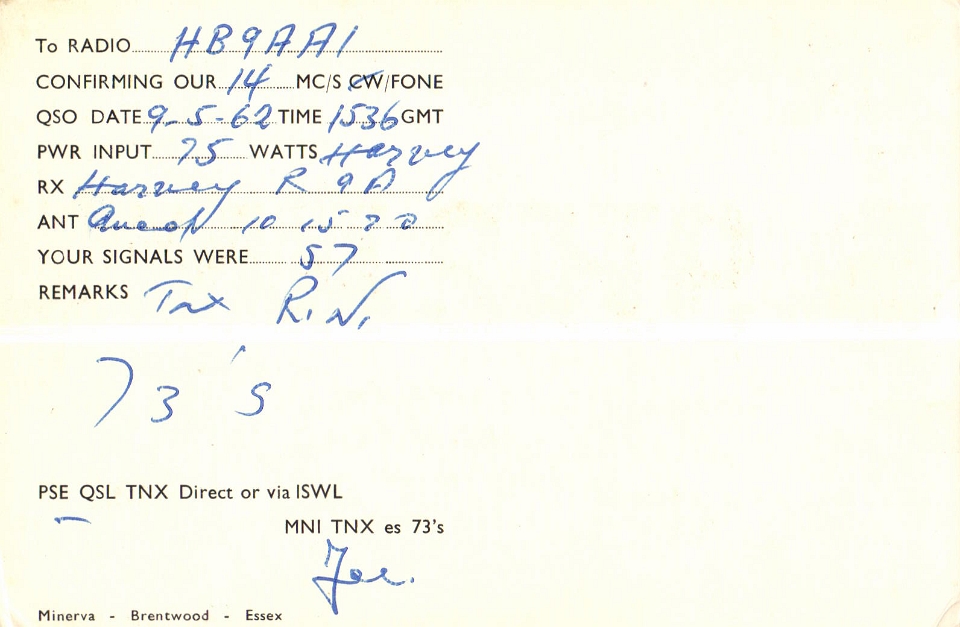 To RADIO HB9AA1
CONFIRMING OUR 14 MC/S CW/FONE
QSO DATE 9-5-62 TIME 1536 GMT
PWR INPUT 75 WATTS Harvey
RX Harvey R 9 A
ANT 10 15 20
YOUR SIGNALS WERE 57
REMARKS Tnx R.N.
73's
PSE QSL TNX Direct or via ISWL
MNI TNX es 73's
Joe.
Minerva - Brentwood - Essex